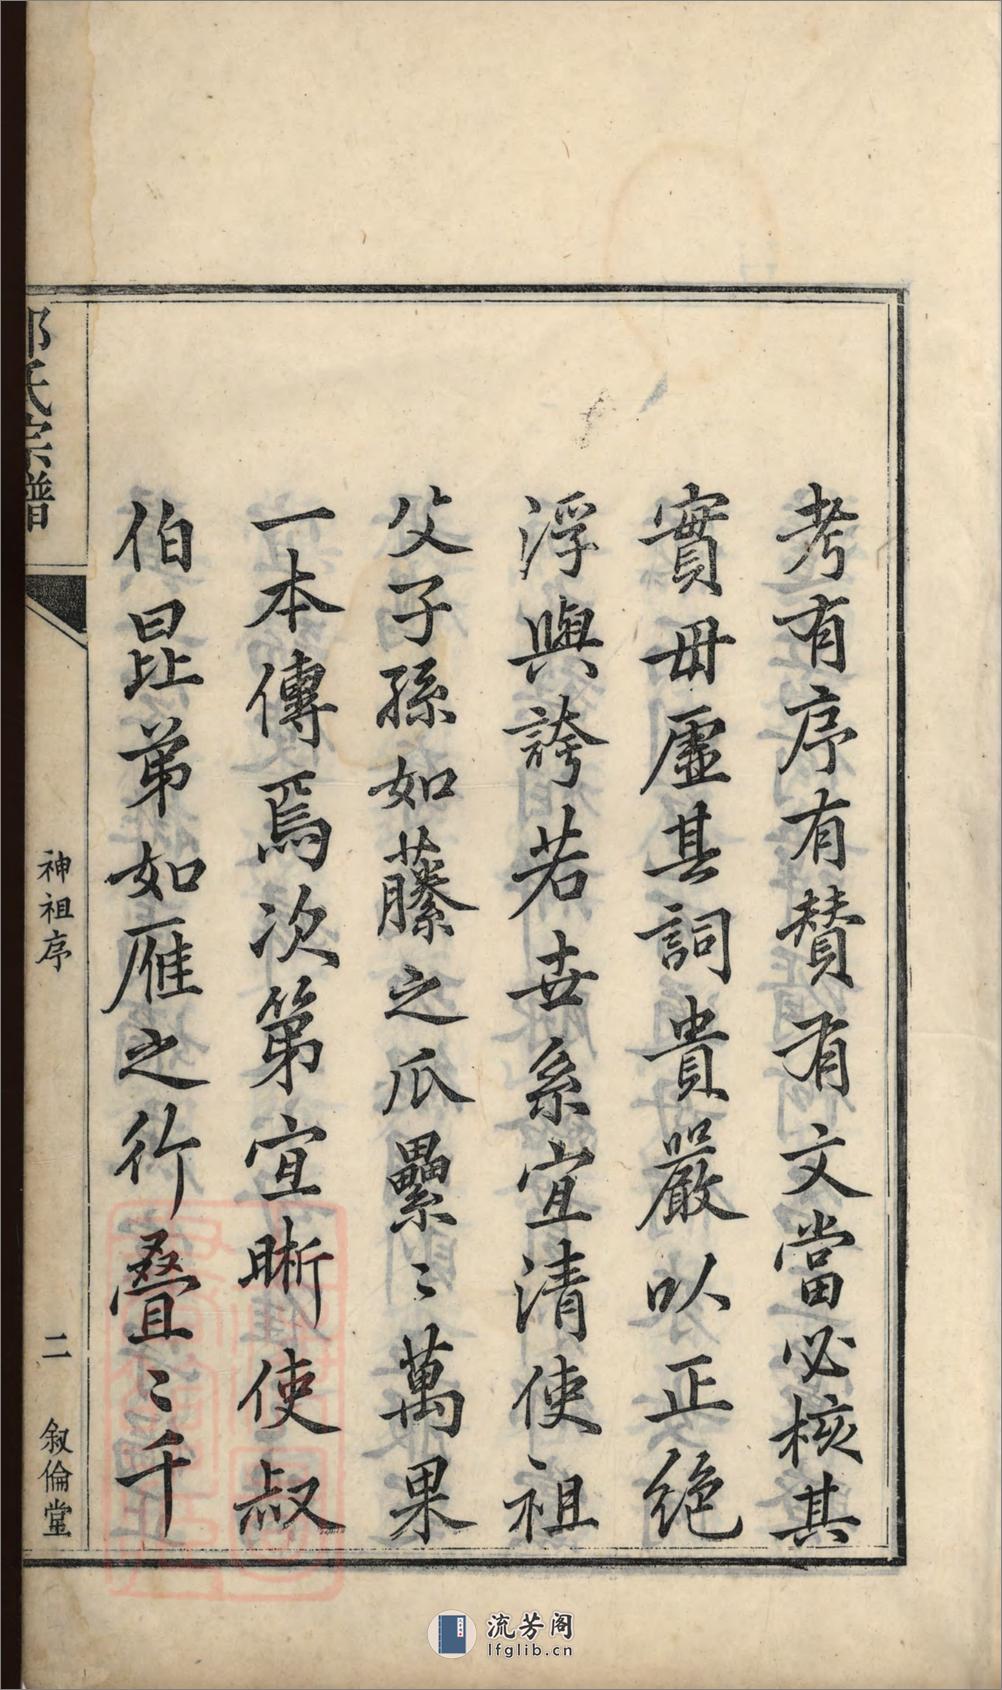 考有序有赞有文當必核其
實毋虛其詞貴嚴以正絶
浮與誇若世系宜清使祖
父子孫如藤之瓜纍〻萬果
一本傳焉次第宜晰使叔
伯昆弟如雁之行疊〻千
氏宗譜
神祖序
二
叙倫堂
流芳阁
lfglib.cn